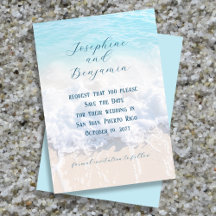 Josephine
and
Benjamin
request that you please
Save the Date
for their wedding in
San Juan, Puerto Rico
October 19, 2077
formal invitation to follow